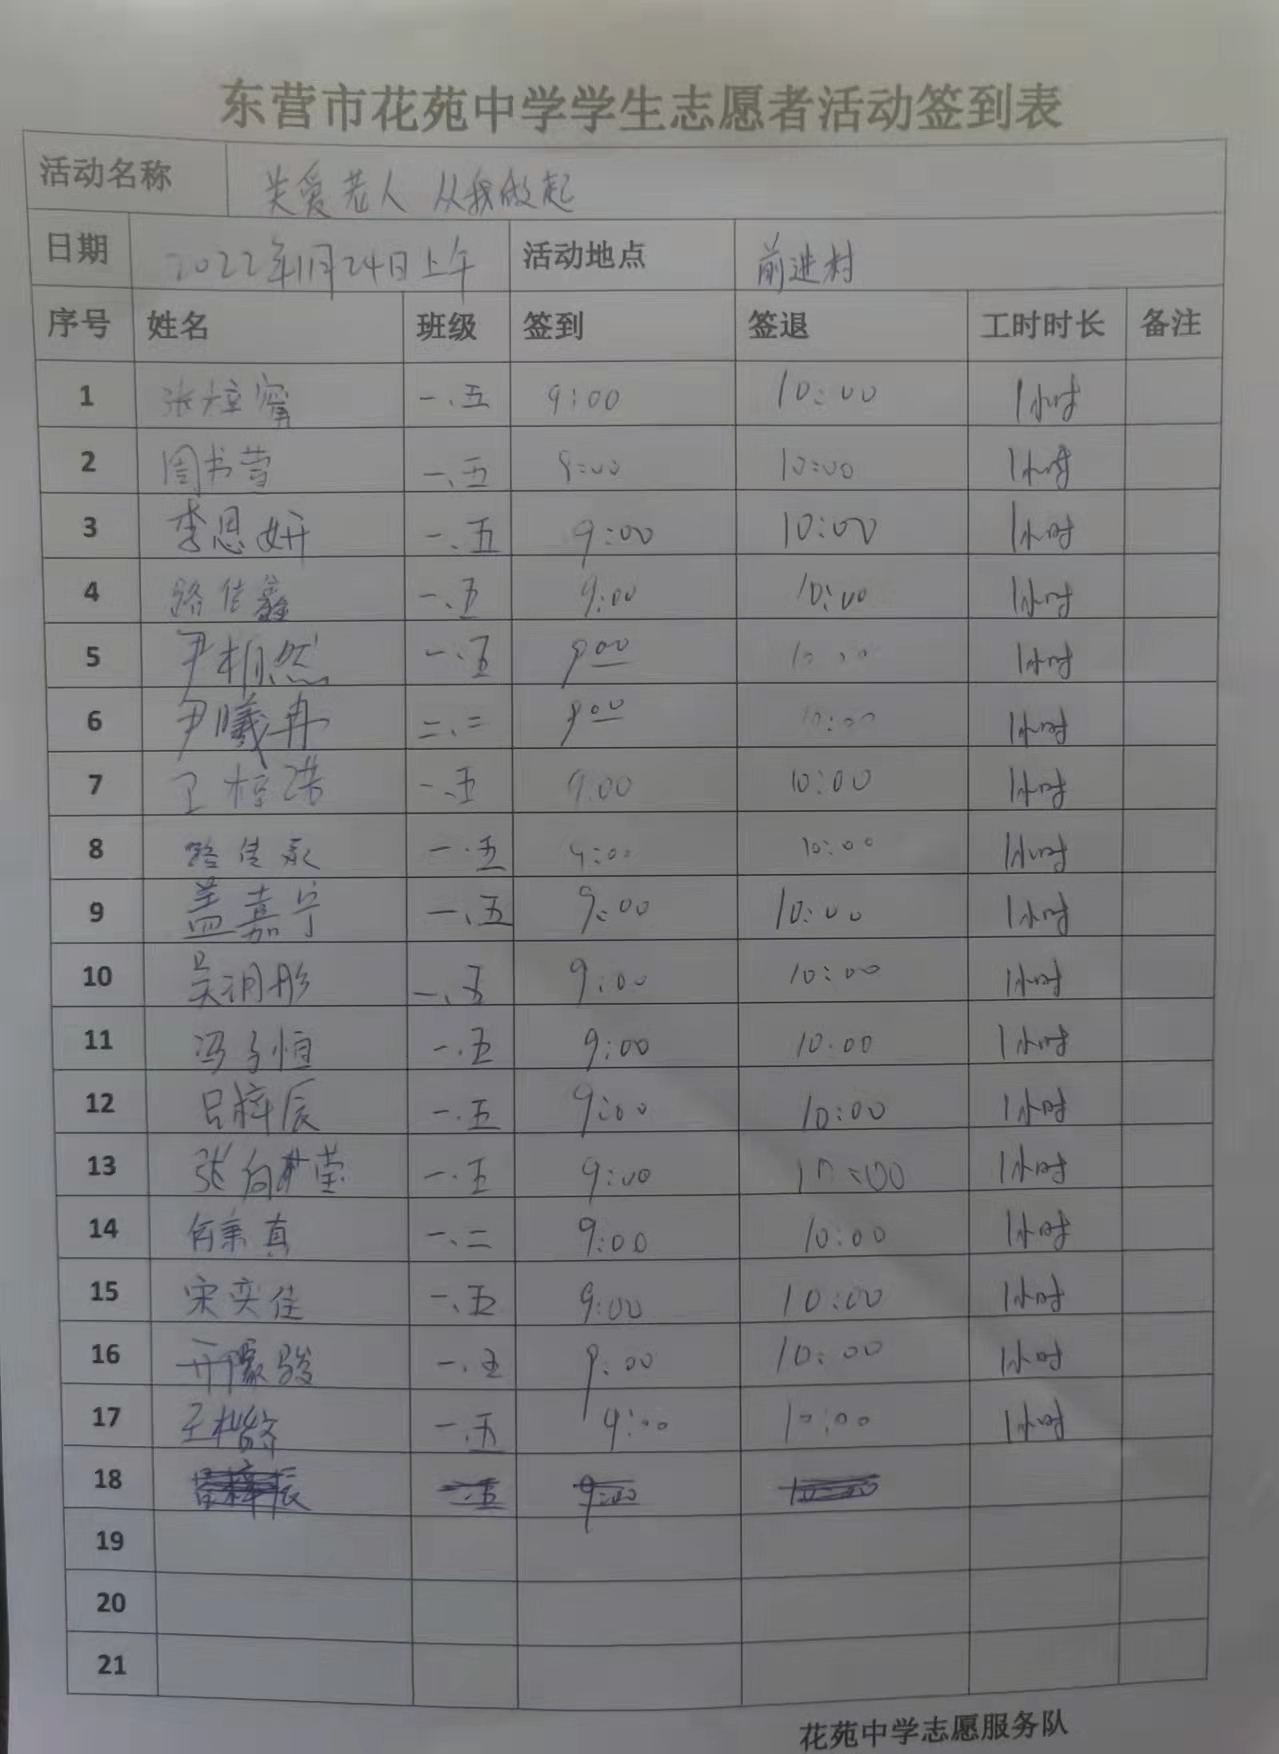 东营市花苑中学学生志愿者活动签到表
活动名称 关爱老人 从我做起
日期 2022年11月24日上午 活动地点 前进村
序号 姓名 班级 签到 签退 工时时长 备注
1 张梓甯 一.五 9:00 10:00 1小时
2 周书萱 一.五 9:00 10:00 1小时
3 李恩妍 一.五 9:00 10:00 1小时
4 路信鑫 一.五 9:00 10:00 1小时
5 尹相然 一.五 9 00 10:00 1小时
6 尹曦冉 二.二 9 00 10:00 1小时
7 卫梓诺 一.五 9:00 10:00 1小时
8 路信永 一.五 9:00 10:00 1小时
9 盖嘉宁 一.五 9:00 10:00 1小时
10 吴润彤 一.五 9:00 10:00 1小时
11 冯子恒 一.五 9:00 10:00 1小时
12 吕梓辰 一.五 9:00 10:00 1小时
13 张向 莹 一.五 9:00 10:00 1小时
14 何秉真 一.二 9:00 10:00 1小时
15 宋奕佳 一.五 9:00 10:00 1小时
16 骏 一.五 9:00 10:00 1小时
17 王 一.五 9:00 10:00 1小时
18 吕梓辰 一.五 9:00 10:00
19
20
21
花苑中学志愿服务队